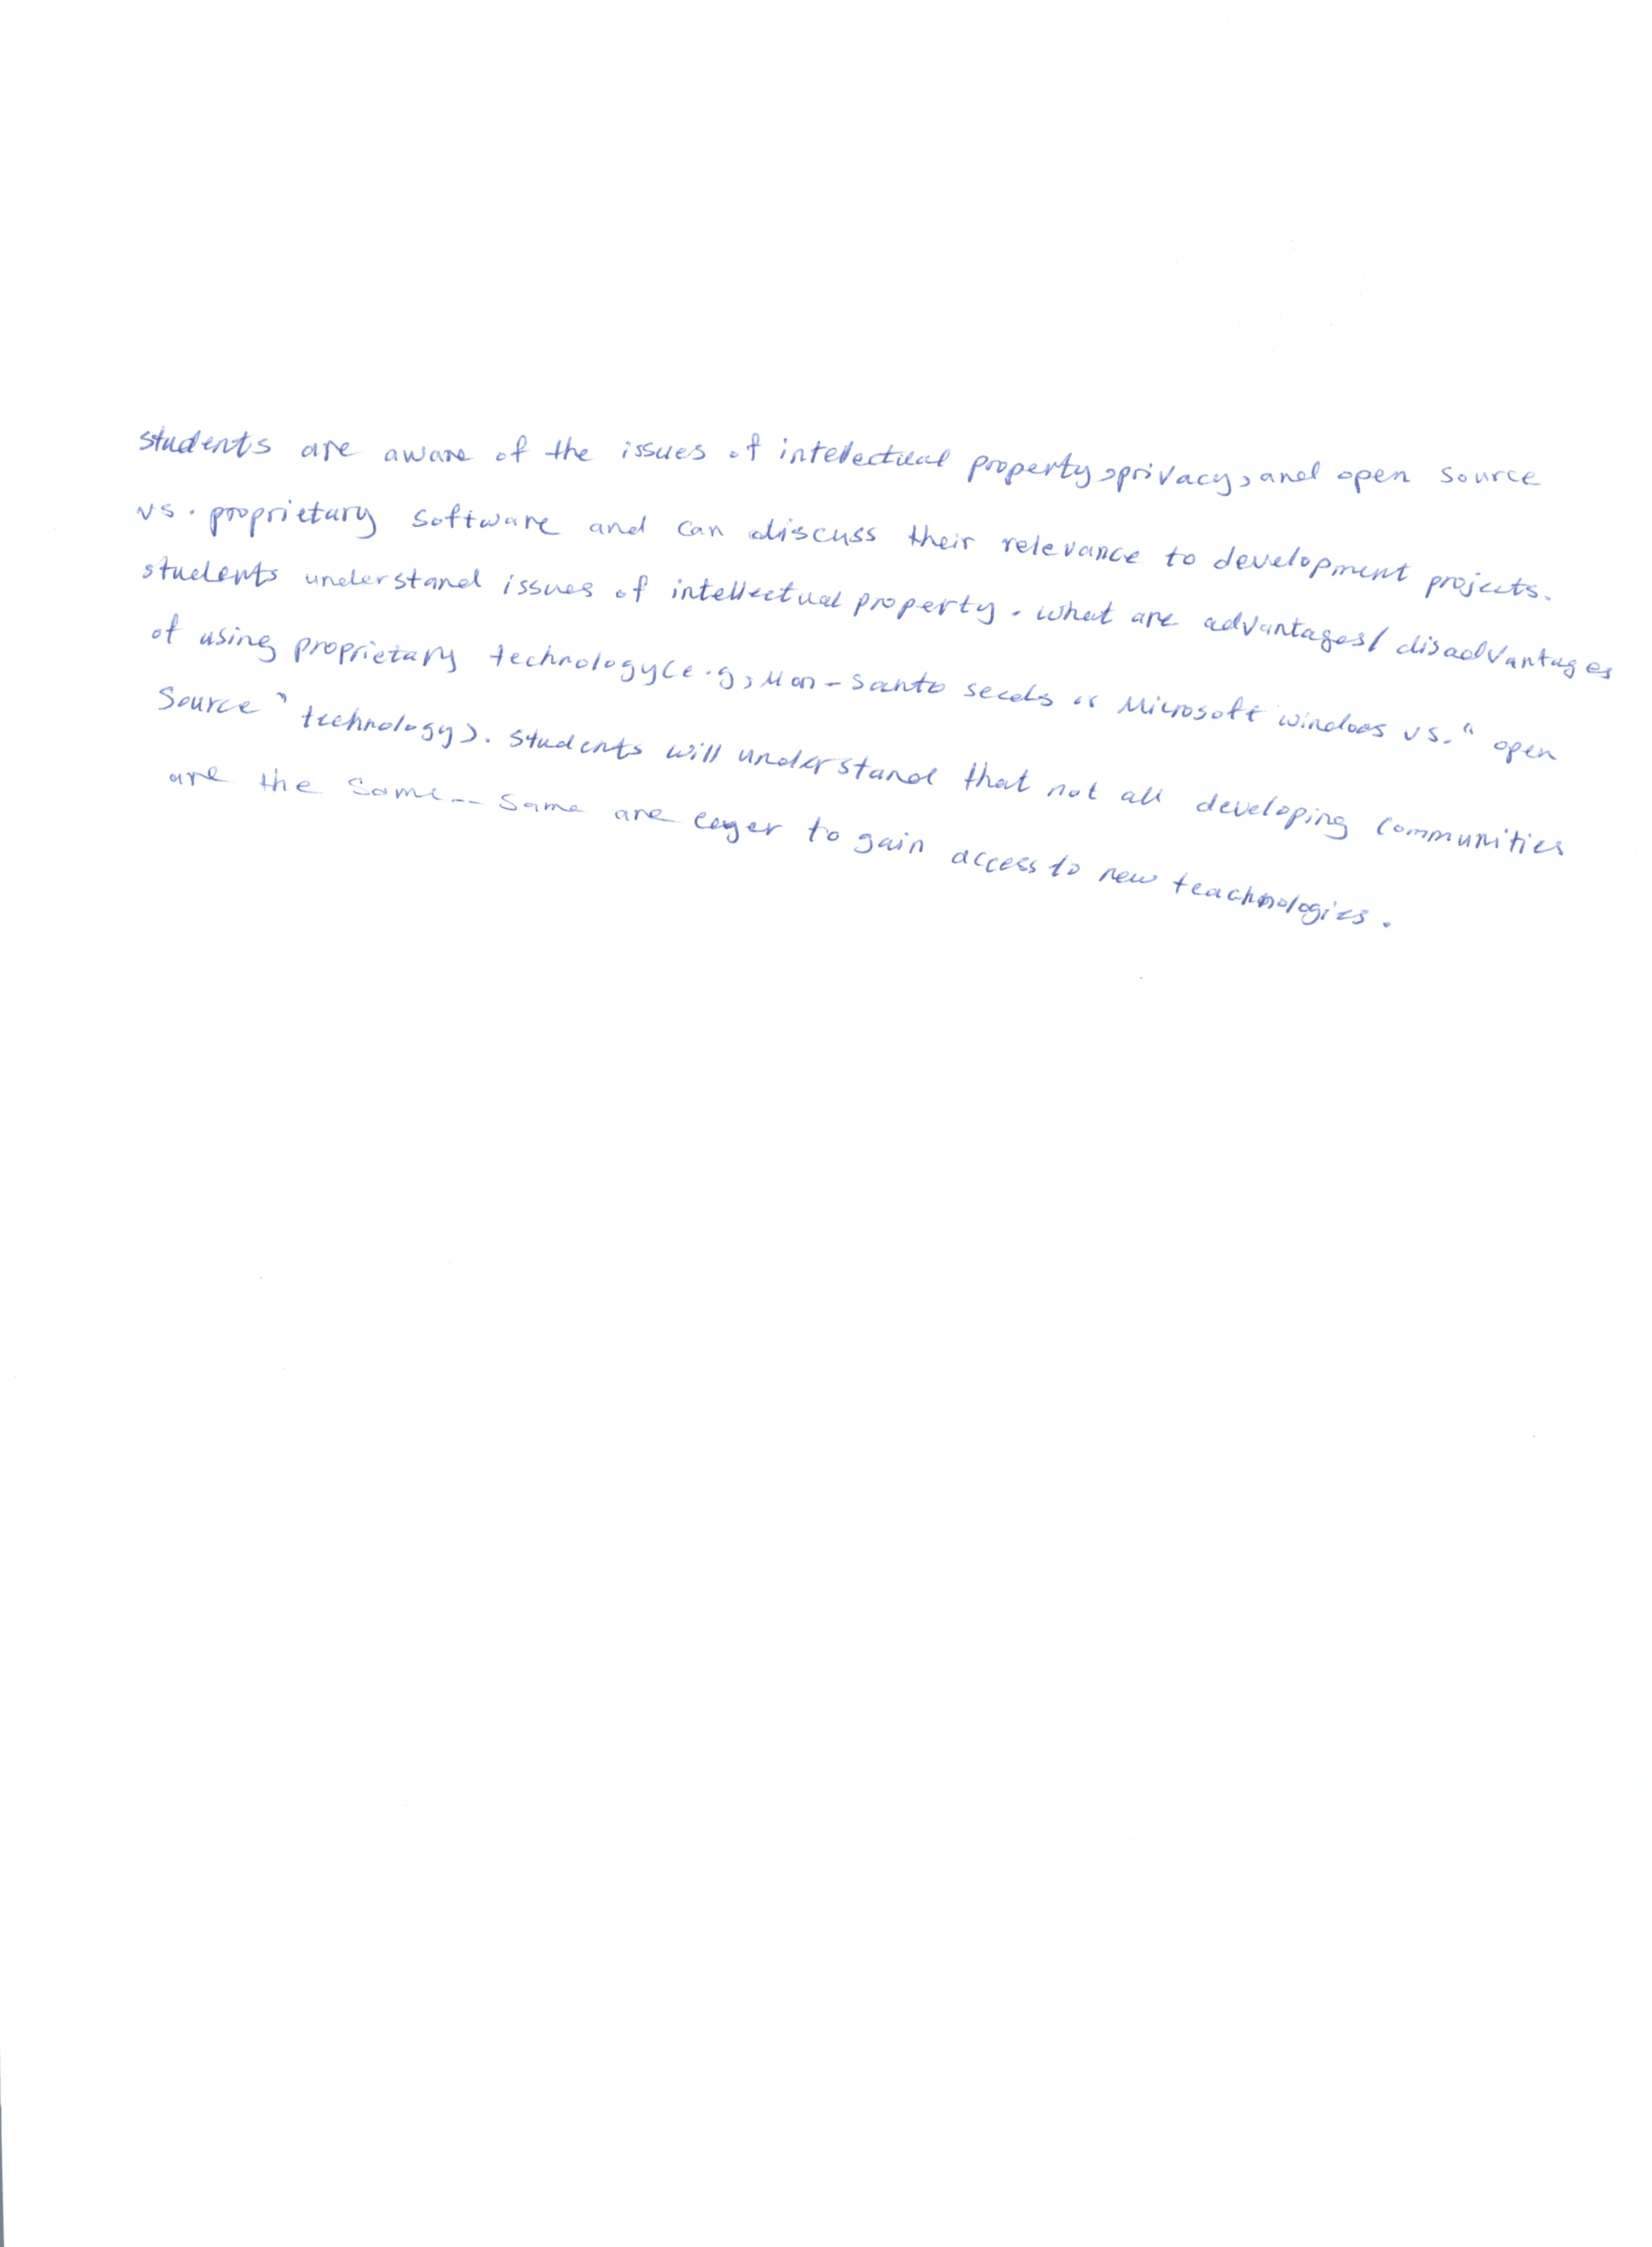 students are aware of the issues of intellectual property, privacy, and open source
vs. proprietary software and can discuss their relevance to development projects.
students understand issues of intellectual property. what are advantages/ disadvantages
of using proprietary technology(e.g, Mon-santo seeds or Microsoft windoos vs. "open
Source" technology). Students will understand that not all developing communities
are the same-- Same are eager to gain access to new teachnologies.